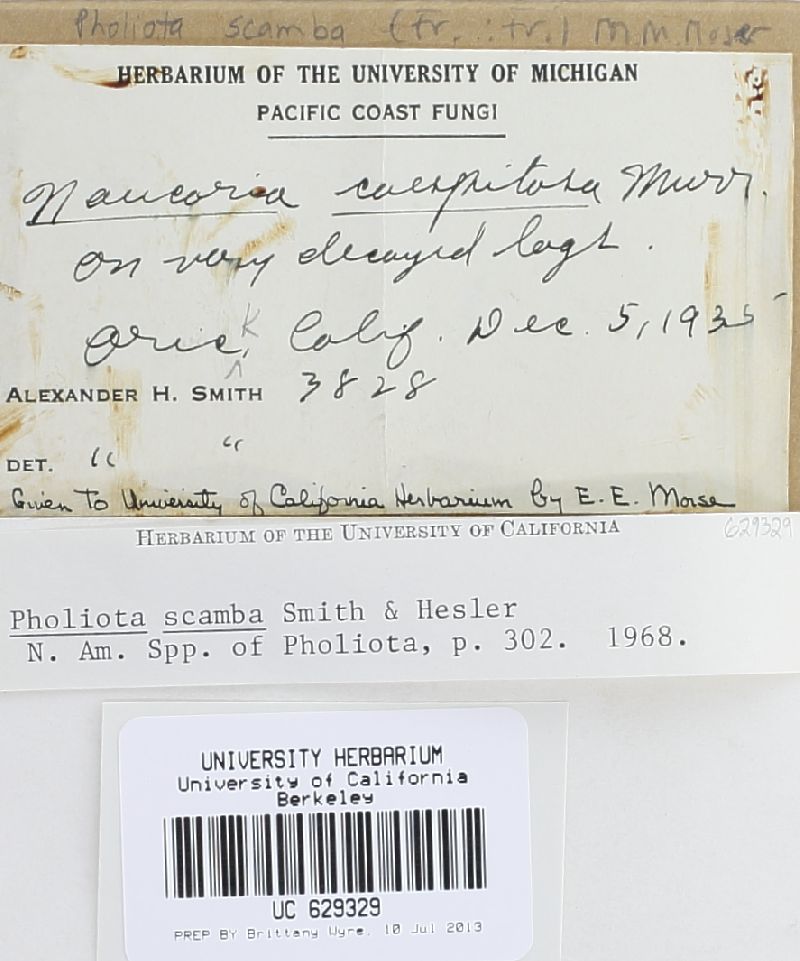 Pholiota scamba (Fr. : Fr.) M.M. Moser
HERBARIUM OF THE UNIVERSITY OF MICHIGAN
PACIFIC COAST FUNGI
Naucoria caespitosa Murr.
on very decayed logs.
Orick, Calif. Dec. 5, 1935
ALEXANDER H. SMITH 3828
DET. " "
Given To University of California Herbarium by E. E. Morse
HERBARIUM OF THE UNIVERSITY OF CALIFORNIA 629329
Pholiota scamba Smith & Hesler
N. Am. Spp. of Pholiota, p. 302. 1968.
UNIVERSITY HERBARIUM
University of California
Berkeley
UC 629329
PREP BY Brittany Wyre, 10 Jul 2013